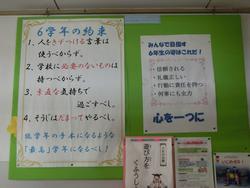 6学年の約束
1、人をきずつける言葉は
使うべからず。
2、学校に必要のないものは
持つべからず。
3、素直な気持ちで
過ごすべし。
4、そうじはだまってやるべし。
低学年の手本になるような
「最高」学年になるべし!
みんなで目指す
6年生の姿はこれだ!
・信頼される
・礼儀正しい
・行動に責任を持つ
・何事にも全力
心を一つに
遊び方を
くふうし